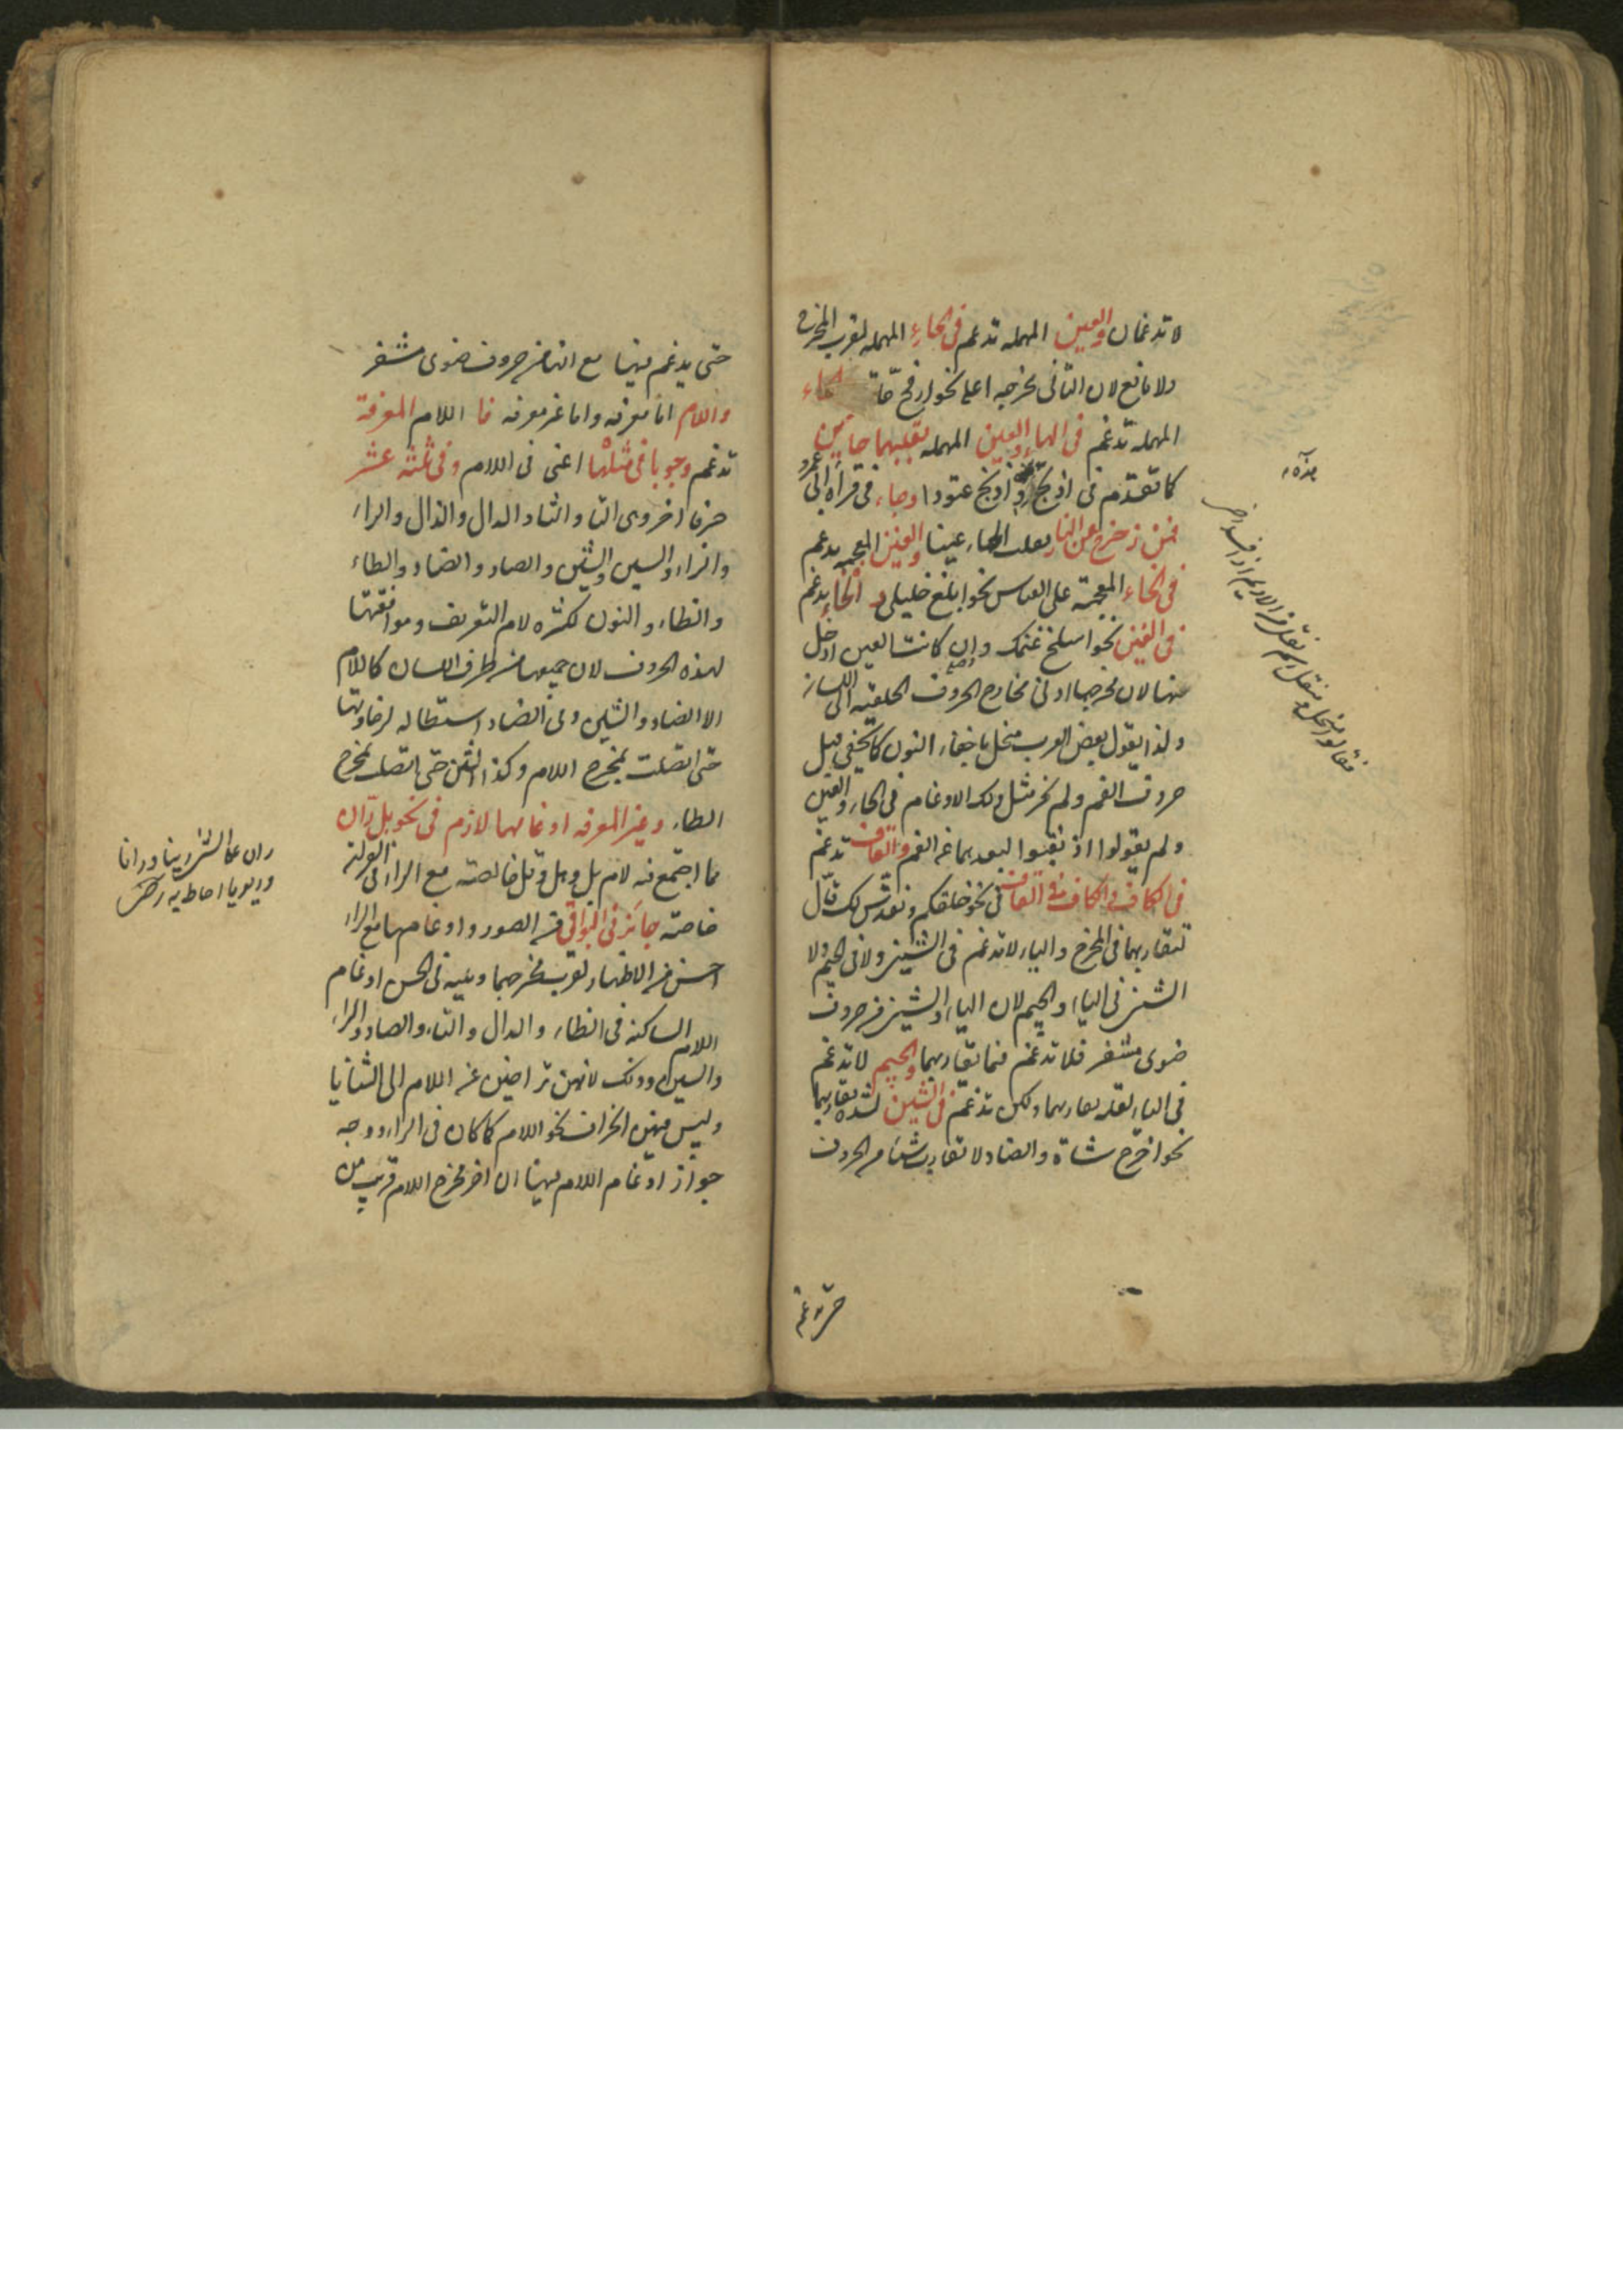 لا تدغمان والعين المهملة تدغم فى الحاء المهملة لقرب المخرج
ولا مانع لان الثانى مخرجه اعلى نحو ارفع حّاتما الحاء
المهملة تدغم فى الهاء والعين المهملة بقلبهما حائين
كما تقدّم فى اذبحّتودا اذبح عتودا وجاء فى قراءة ابى عمرو
فمن زحزح عن النار بقلب الحاء عينا والغين المعجمة يدغم
فى الخاء المعجمة على القياس نحو ابلغ خليلى و الخاء يدغم
فى الغين نحو اسلخ غنمك وان كانت الغين ادخل
منها لان مخرجها ادنى مخارج الحروف الحلقية الى اللسان
ولذا يقول بعض العرب منخل باخفاء النون كما يخفى قبل
حروف الفم ولم يجز مثل ذلك الادغام فى الحاء والعين
ولم يقولوا اذ نقبوا لبعدهما عن الفم والقاف تدغم
فى الكاف والكاف فى القاف فى نحو خلقكم ونقدس لك قال
لتقاربهما فى المخرج والياء لا تدغم فى الشين ولا فى الجيم ولا
الشين فى الياء والجيم لان الياء والشين من حروف
ضوى مشفر فلا تدغم فيما تقاربهما والجيم لا تدغم
فى الياء لقلة تقاربهما ولكن تدغم فى الشين لشدة تقاربهما
نحو اخرج شاة والضاد لا تقارب شيئا من الحروف
حتى يدغم
حتى يدغم فيها مع انها من حروف ضوى مشفر
واللام اما معرفة واما غير معرفة فا اللام المعرفة
تدغم وجوبا فى مثلها اعنى فى اللام وفى ثلثة عشر
حرفا اخر وهى التا والثاء والدال والذال والراء
والزاء والسين والشين والصاد والضاد والطاء
والظاء والنون لكثرة لام التعريف وموافقتها
لهذه الحروف لان جميعها من طرف اللسان كاللام
الا الضاد والشين وفى الضاد استطالة لرخاوتها
حتى اتصلت بمخرج اللام وكذا الشين حتى اتصلت بمخرج
الطاء وغير المعرفة ادغامها لازم فى نحو بل ران
مما اجتمع فيه لام بل وهل وقل خالصة مع الراء فى القرآن
خاصة جائز فى البواقى من الصور وادغامها مع الراء
احسن من الاظهار لقرب مخرجهما ويليه فى الحسن ادغام
اللام الساكنة فى الطاء والدال والتاء والصاد والزاء
والسين وذلك لانهن تراخين عن اللام الى الثنايا
وليس فيهن انحراف نحو اللام كما كان فى الراء ووجه
جواز ادغام اللام فيها ان اخر مخرج اللام قريب من